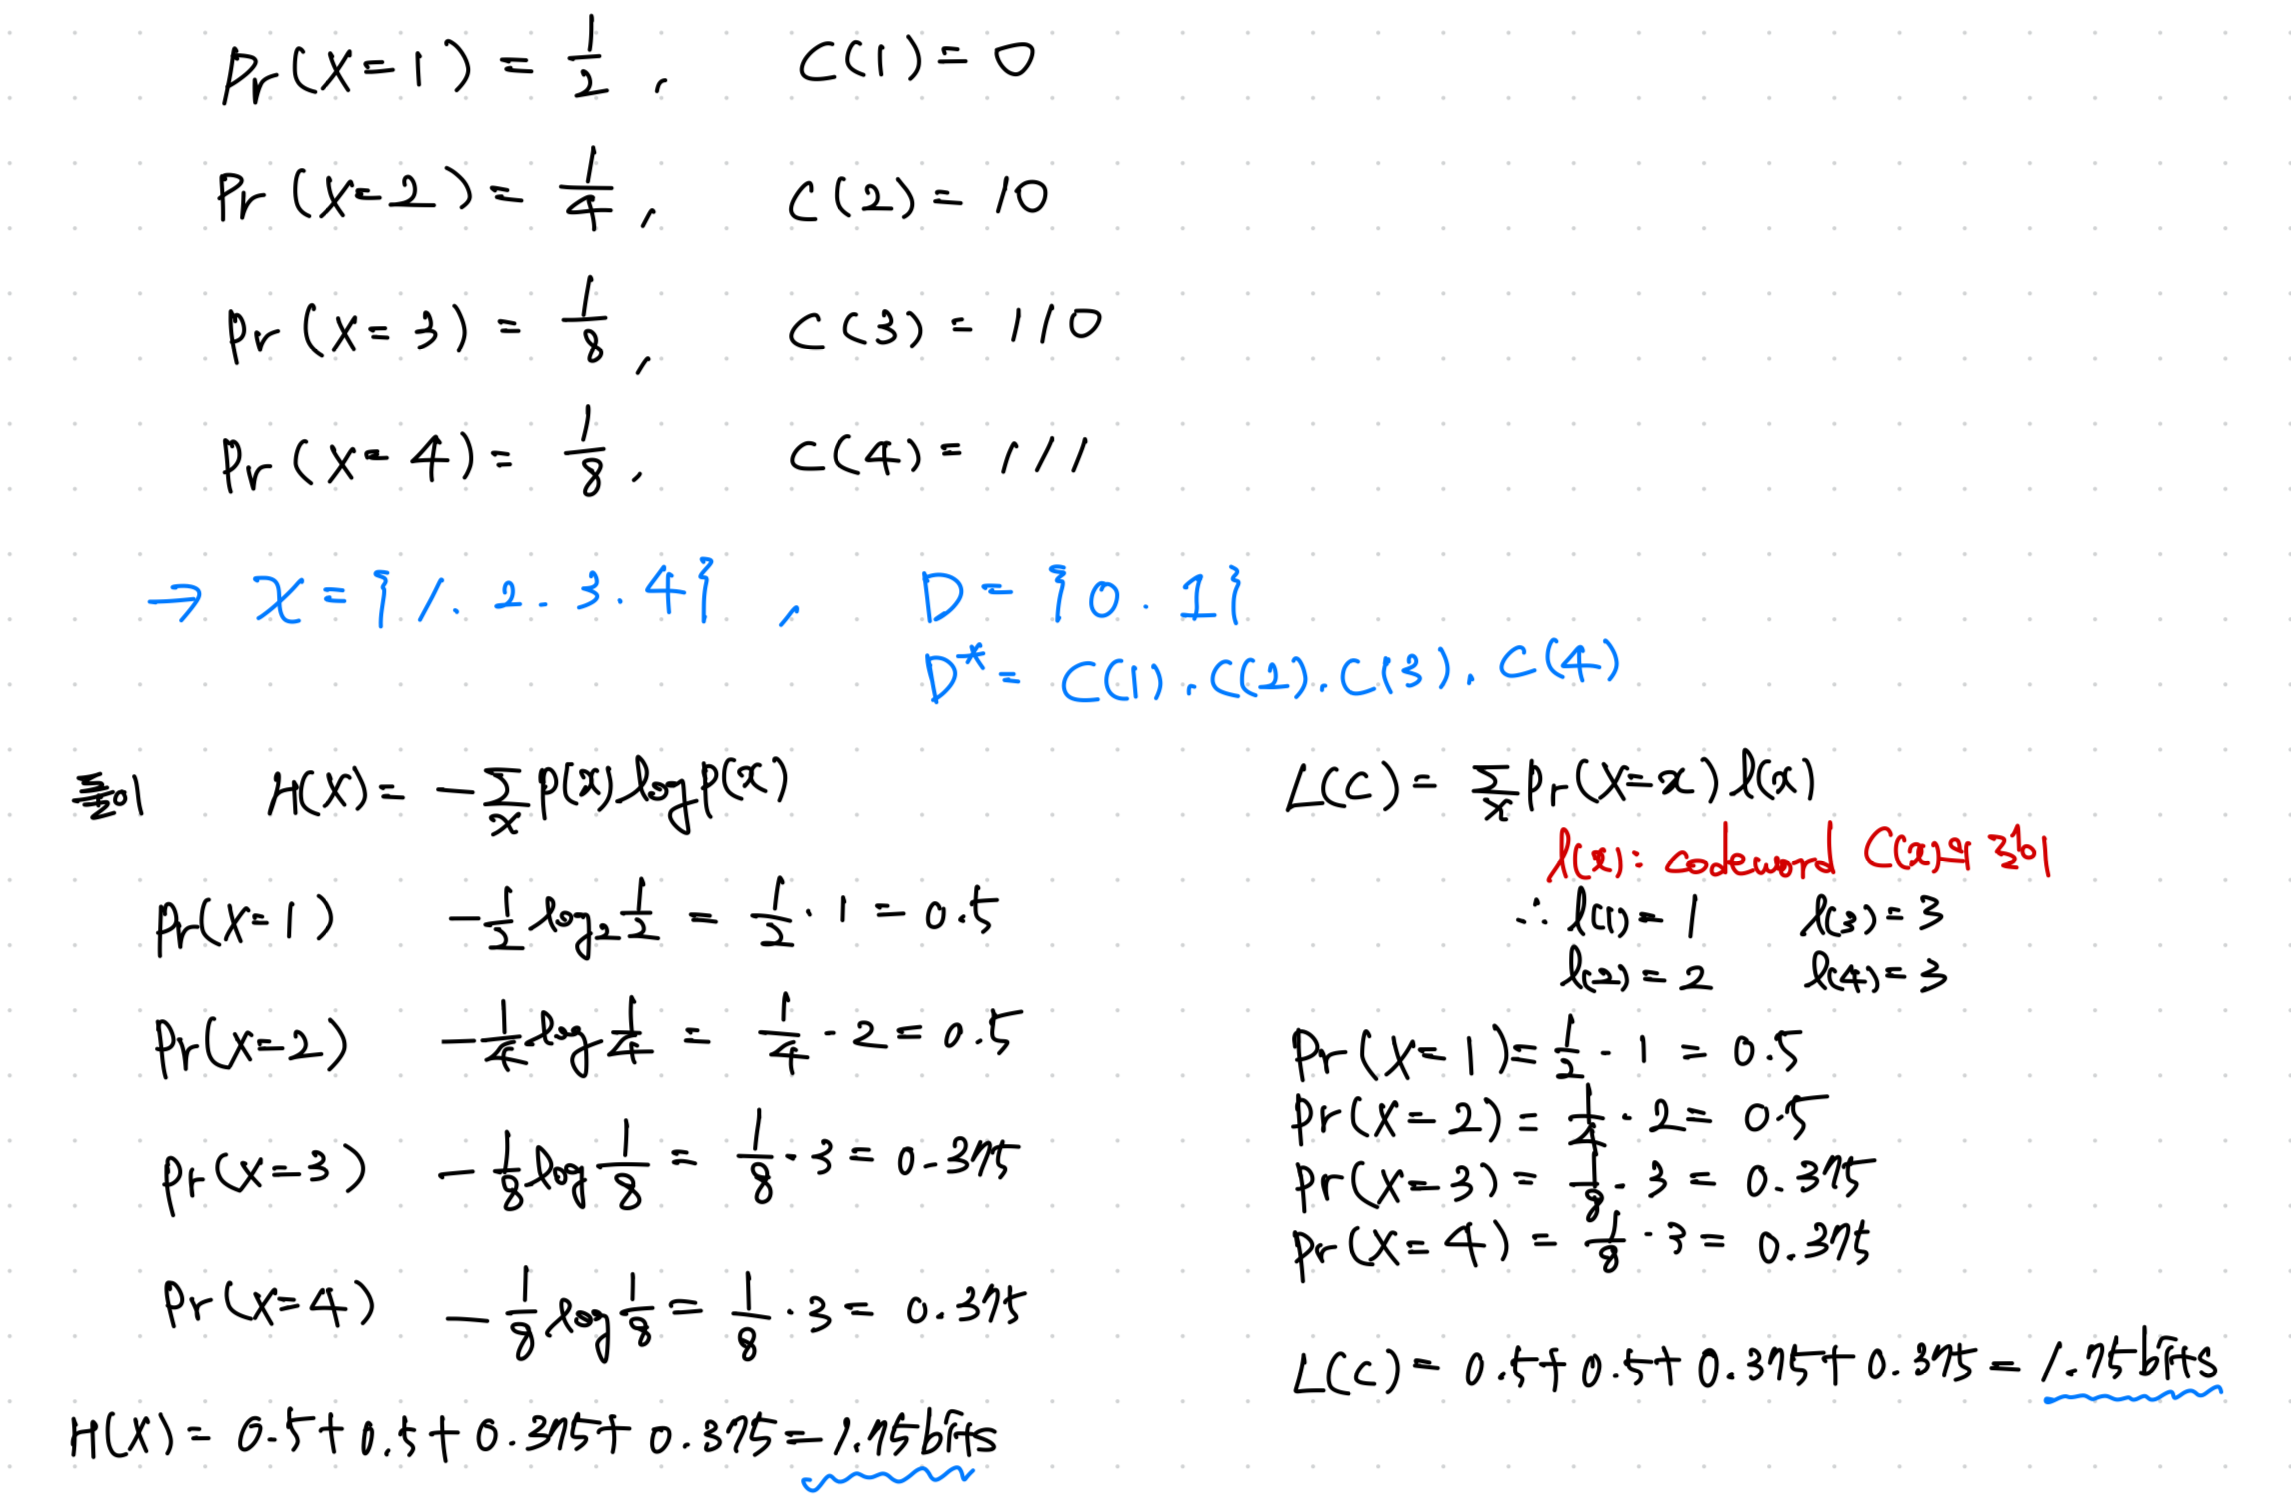 Pr(X=1) = 1/2, C(1) = 0
Pr(X=2) = 1/4, C(2) = 10
Pr(X=3) = 1/8, C(3) = 110
Pr(X=4) = 1/8, C(4) = 111
→ X = {1. 2. 3. 4}, D = {0. 1}
D* = C(1), C(2), C(3), C(4)
H(X) = -∑x p(x) log p(x)
Pr(X=1) -1/2 log₂ 1/2 = 1/2 · 1 = 0.5
Pr(X=2) -1/4 log 1/4 = 1/4 · 2 = 0.5
Pr(X=3) -1/8 log 1/8 = 1/8 · 3 = 0.375
Pr(X=4) -1/8 log 1/8 = 1/8 · 3 = 0.375
H(X) = 0.5 + 0.5 + 0.375 + 0.375 = 1.75 bits
L(C) = ∑x Pr(X=x) l(x)
l(x): codeword C(x)의 길이
∴ l(1) = 1 l(3) = 3
l(2) = 2 l(4) = 3
Pr(X=1) = 1/2 · 1 = 0.5
Pr(X=2) = 1/4 · 2 = 0.5
Pr(X=3) = 1/8 · 3 = 0.375
Pr(X=4) = 1/8 · 3 = 0.375
L(C) = 0.5 + 0.5 + 0.375 + 0.375 = 1.75 bits